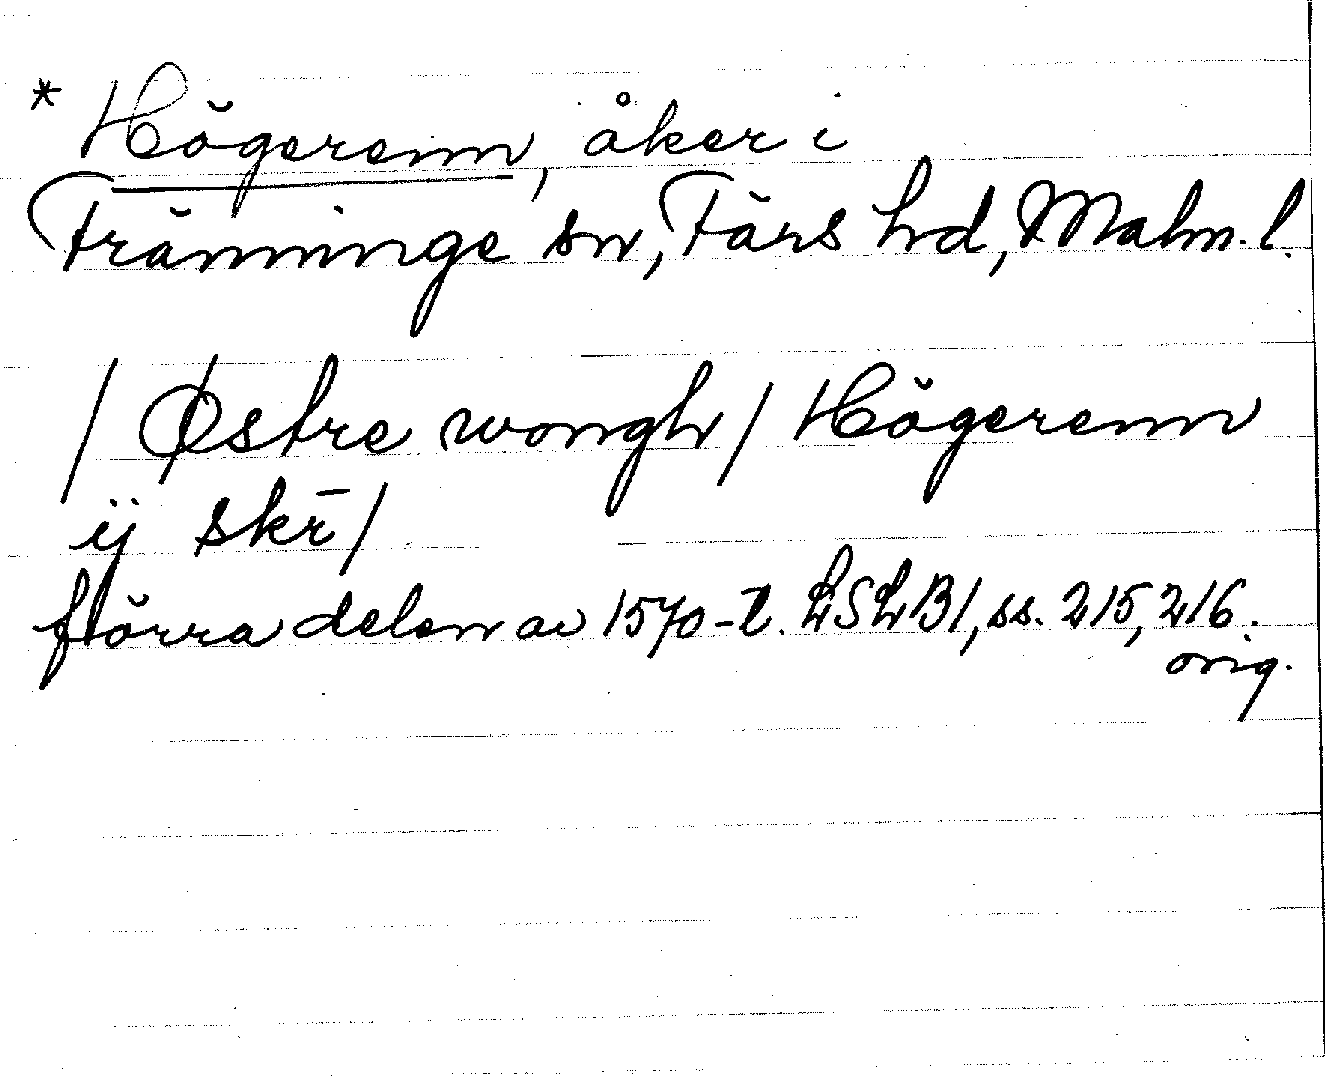 * Högerenn, åker i
Fränninge sn, Färs hd, Malm. l.
/ Østre wongh / Högerenn
ij skr̄ /
förra delen av 1570-t. LSLB1, ss. 215, 216.
orig.